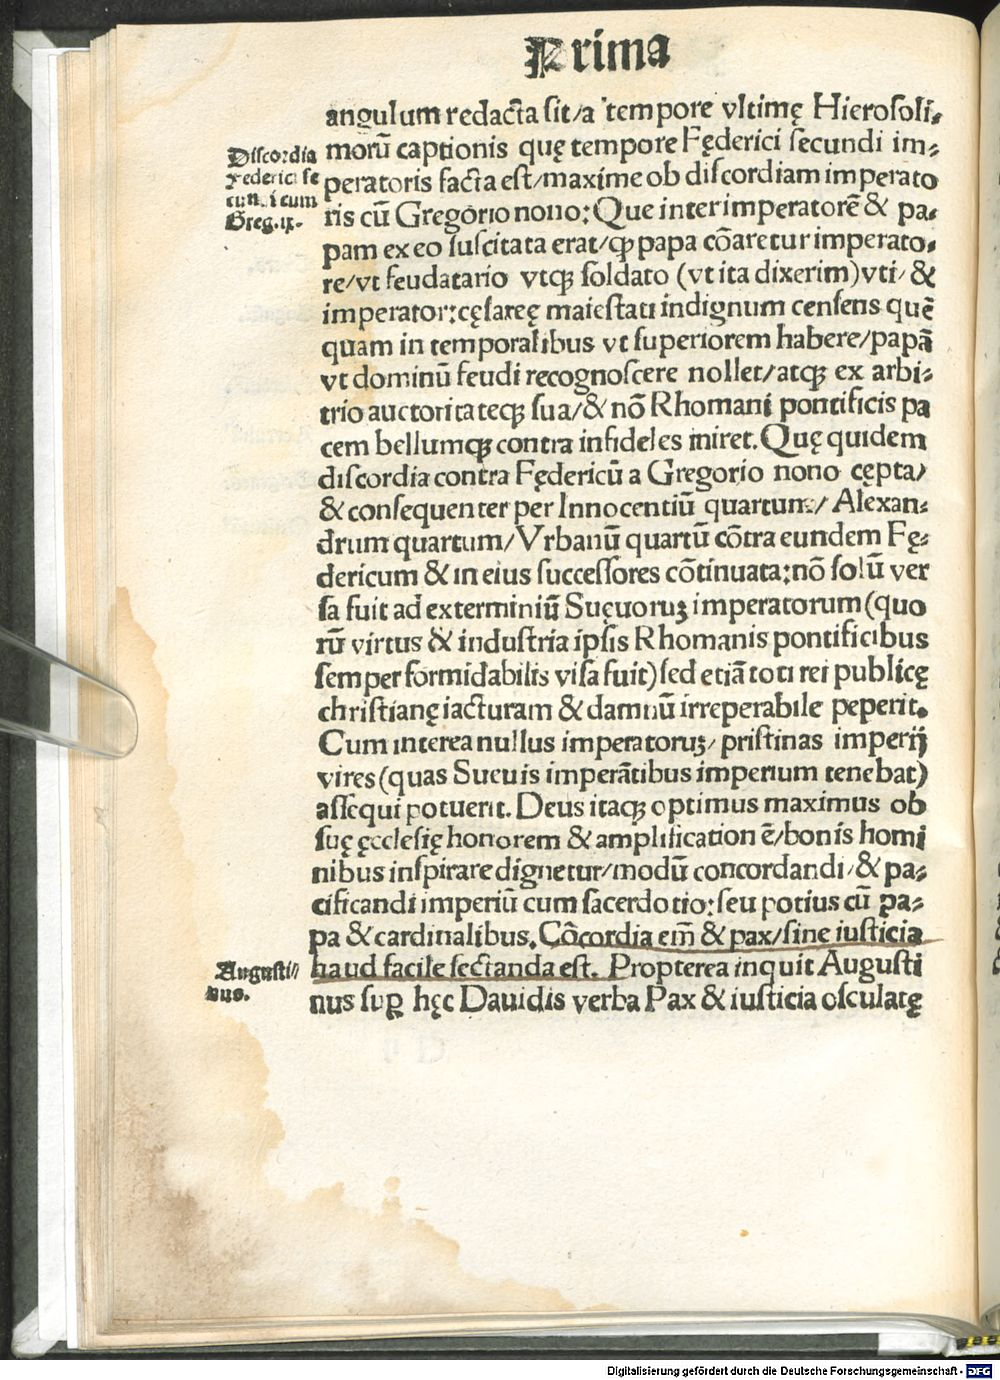 Prima
angulum redacta sit/a tempore vltimę Hierosoli⸗
morū captionis quę tempore Fęderici secundi im⸗
peratoris facta est/maxime ob discordiam imperato
ris cū Gregorio nono: Que inter imperatorē & pa⸗
pam ex eo suscitata erat/ꝙ papa cōaretur imperato⸗
re/vt feudatario vtqꝫ soldato (vt ita dixerim) vti/ &
imperator: cęsareę maiestati indignum censens quē
quam in temporalibus vt superiorem habere/papā
vt dominū feudi recognoscere nollet/atqꝫ ex arbi⸗
trio auctoritateqꝫ sua/& nō Rhomani pontificis pa
cem bellumqꝫ contra infideles iniret. Quę quidem
discordia contra Fędericū a Gregorio nono cępta/
& consequenter per Innocentiū quartum/ Alexan⸗
drum quartum/Vrbanū quartū cōtra eundem Fę⸗
dericum & in eius successores cōtinuata: nō solū ver
sa fuit ad exterminiū Suęuoruꝫ imperatorum (quo
rū virtus & industria ipsis Rhomanis pontificibus
semper formidabilis visa fuit) sed etiā toti rei publicę
christianę iacturam & damnū irreperabile peperit.
Cum interea nullus imperatoruꝫ/ pristinas imperij
vires (quas Sueuis imperātibus imperium tenebat)
assequi potuerit. Deus itaqꝫ optimus maximus ob
suę ęcclesię honorem & amplificationē/bonis homi
nibus inspirare dignetur/modū concordandi/& pa⸗
cificandi imperiū cum sacerdotio: seu potius cū pa⸗
pa & cardinalibus. Cōcordia em̄ & pax/sine iusticia
haud facile sectanda est. Propterea inquit Augusti
nus suꝑ hęc Dauidis verba Pax & iusticia osculatę
Discordia
Federici se
cundi cum
Greg.ix.
Augusti⸗
nus.
Digitalisierung gefördert durch die Deutsche Forschungsgemeinschaft - DFG